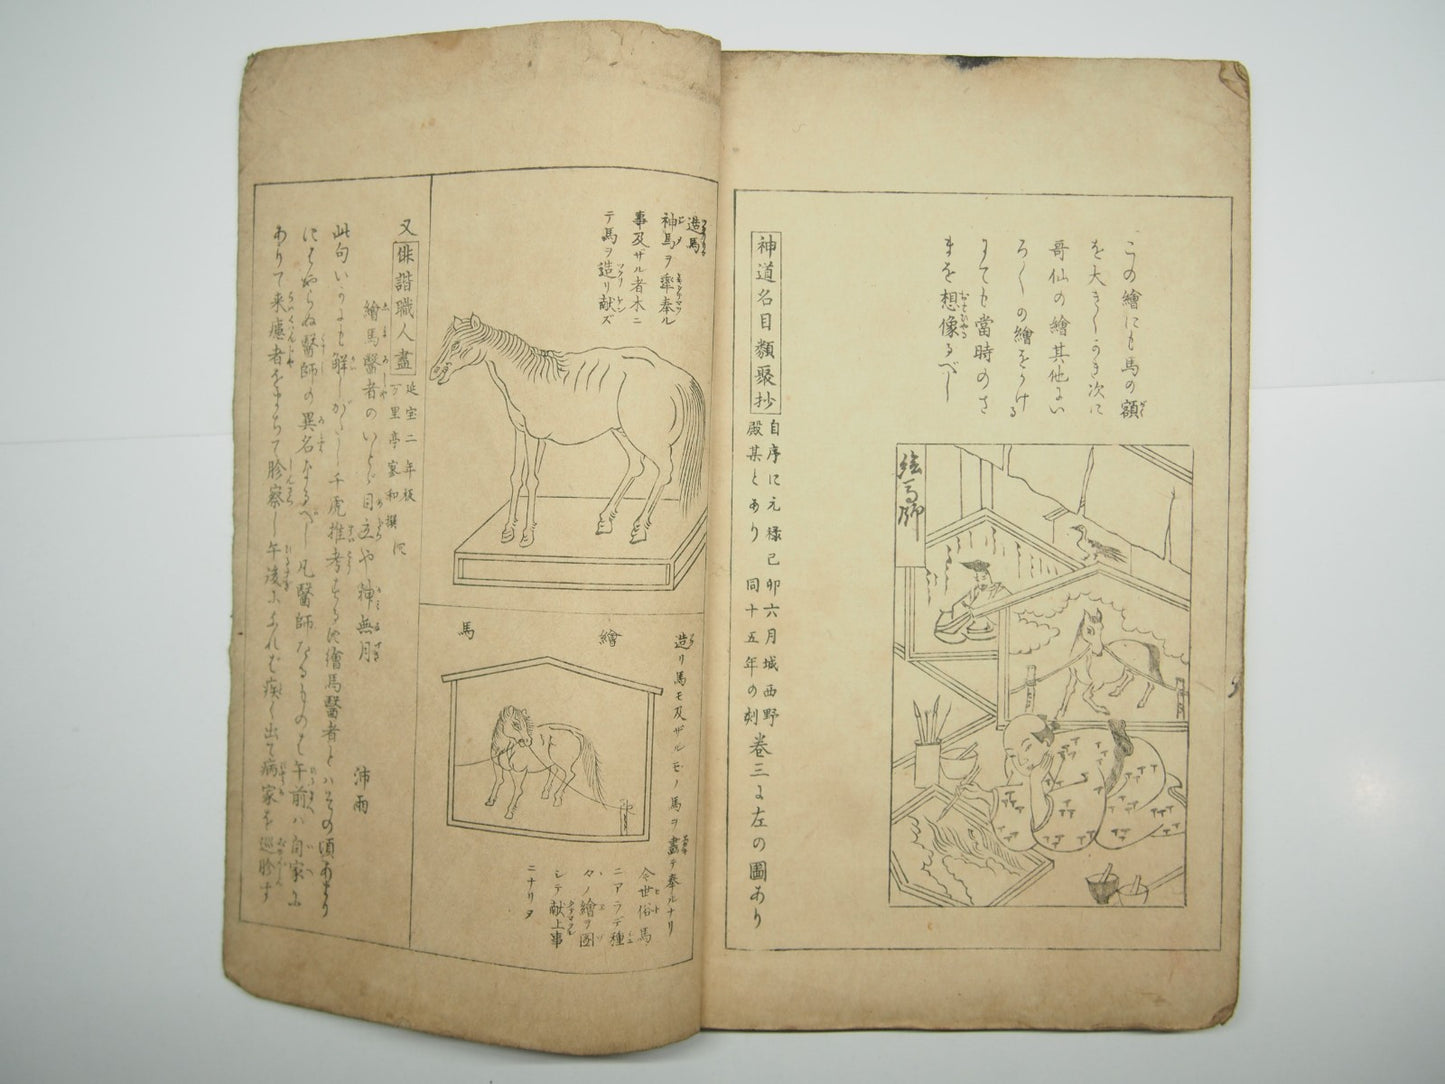 この繪にも馬の額
を大きくかき次に
哥仙の繪其他い
ろくの繪をかける
まても當時のさ
まを想像るべし
絵馬師
神道名目類聚抄
自序に元禄己卯六月城西野
殿某とあり 同十五年の刻
巻三に左の圖あり
造馬
神馬ヲ牽奉ル
事及ザル者木ニ
テ馬ヲ造リ献ズ
造リ馬モ及ザルモノ馬ヲ畫テ奉ルナリ
繪
馬
今世俗馬
ニアラデ種
々ノ繪ヲ圖
シテ献上事
ニナリヌ
又俳諧職人盡
延宝二年板
万里亭寒和撰に
繪馬醫者のいとゞ目立や神無月
沛雨
此句いかにも解しがたし千虎推考するに繪馬醫者とハその頃あまり
にはやらぬ醫師の異名なるべし凡醫師なるものは午前ハ自家に
ありて来
者をまちて胗察し午後
病家を巡胗す